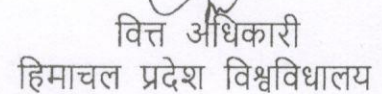 वित्त अधिकारी
हिमाचल प्रदेश विश्वविधालय